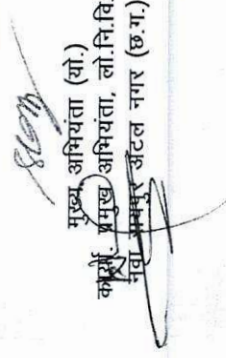 मुख्य अभियंता (यो.)
कार्या. प्रमुख अभियंता, लो.नि.वि.
नवा रायपुर अटल नगर (छ.ग.)